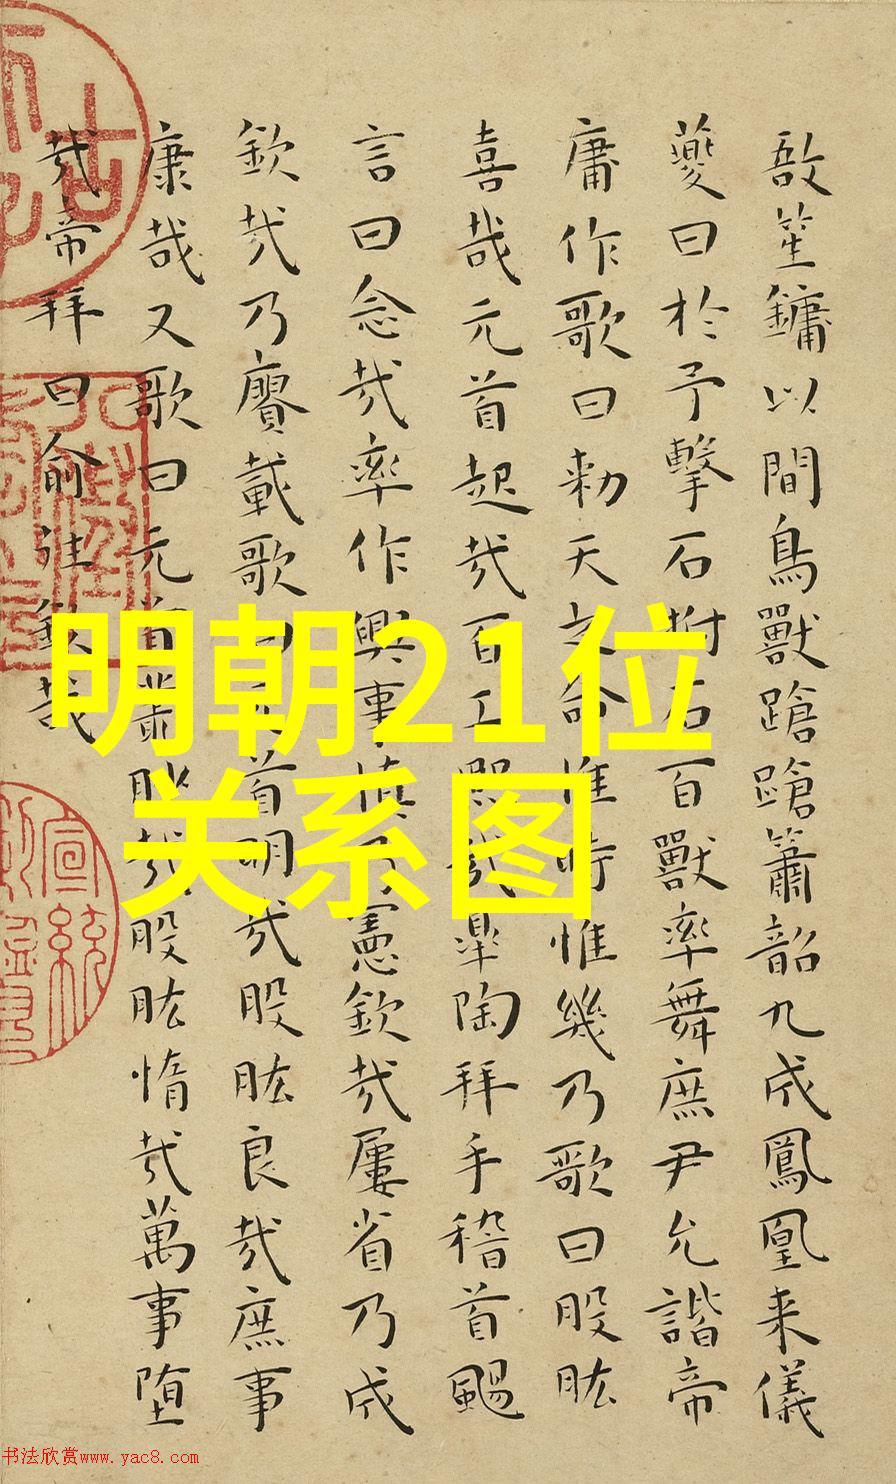 敔笙鏞以間鳥獸蹌蹌簫韶九成鳳凰来儀
夔曰於予擊石拊石百獸率舞庶尹允諧帝
庸作歌曰勑天之命惟時惟幾乃歌曰股肱
喜哉元首起哉百工熙哉皋陶拜手稽首颺
言曰念哉率作興事慎乃憲欽哉屢省乃成
欽哉乃賡載歌曰元首明哉股肱良哉庶事
康哉又歌曰元首叢脞哉股肱惰哉萬事堕
哉帝拜曰俞往欽哉
明朝21位
关系图
宣統
书法欣赏www.yac8.com